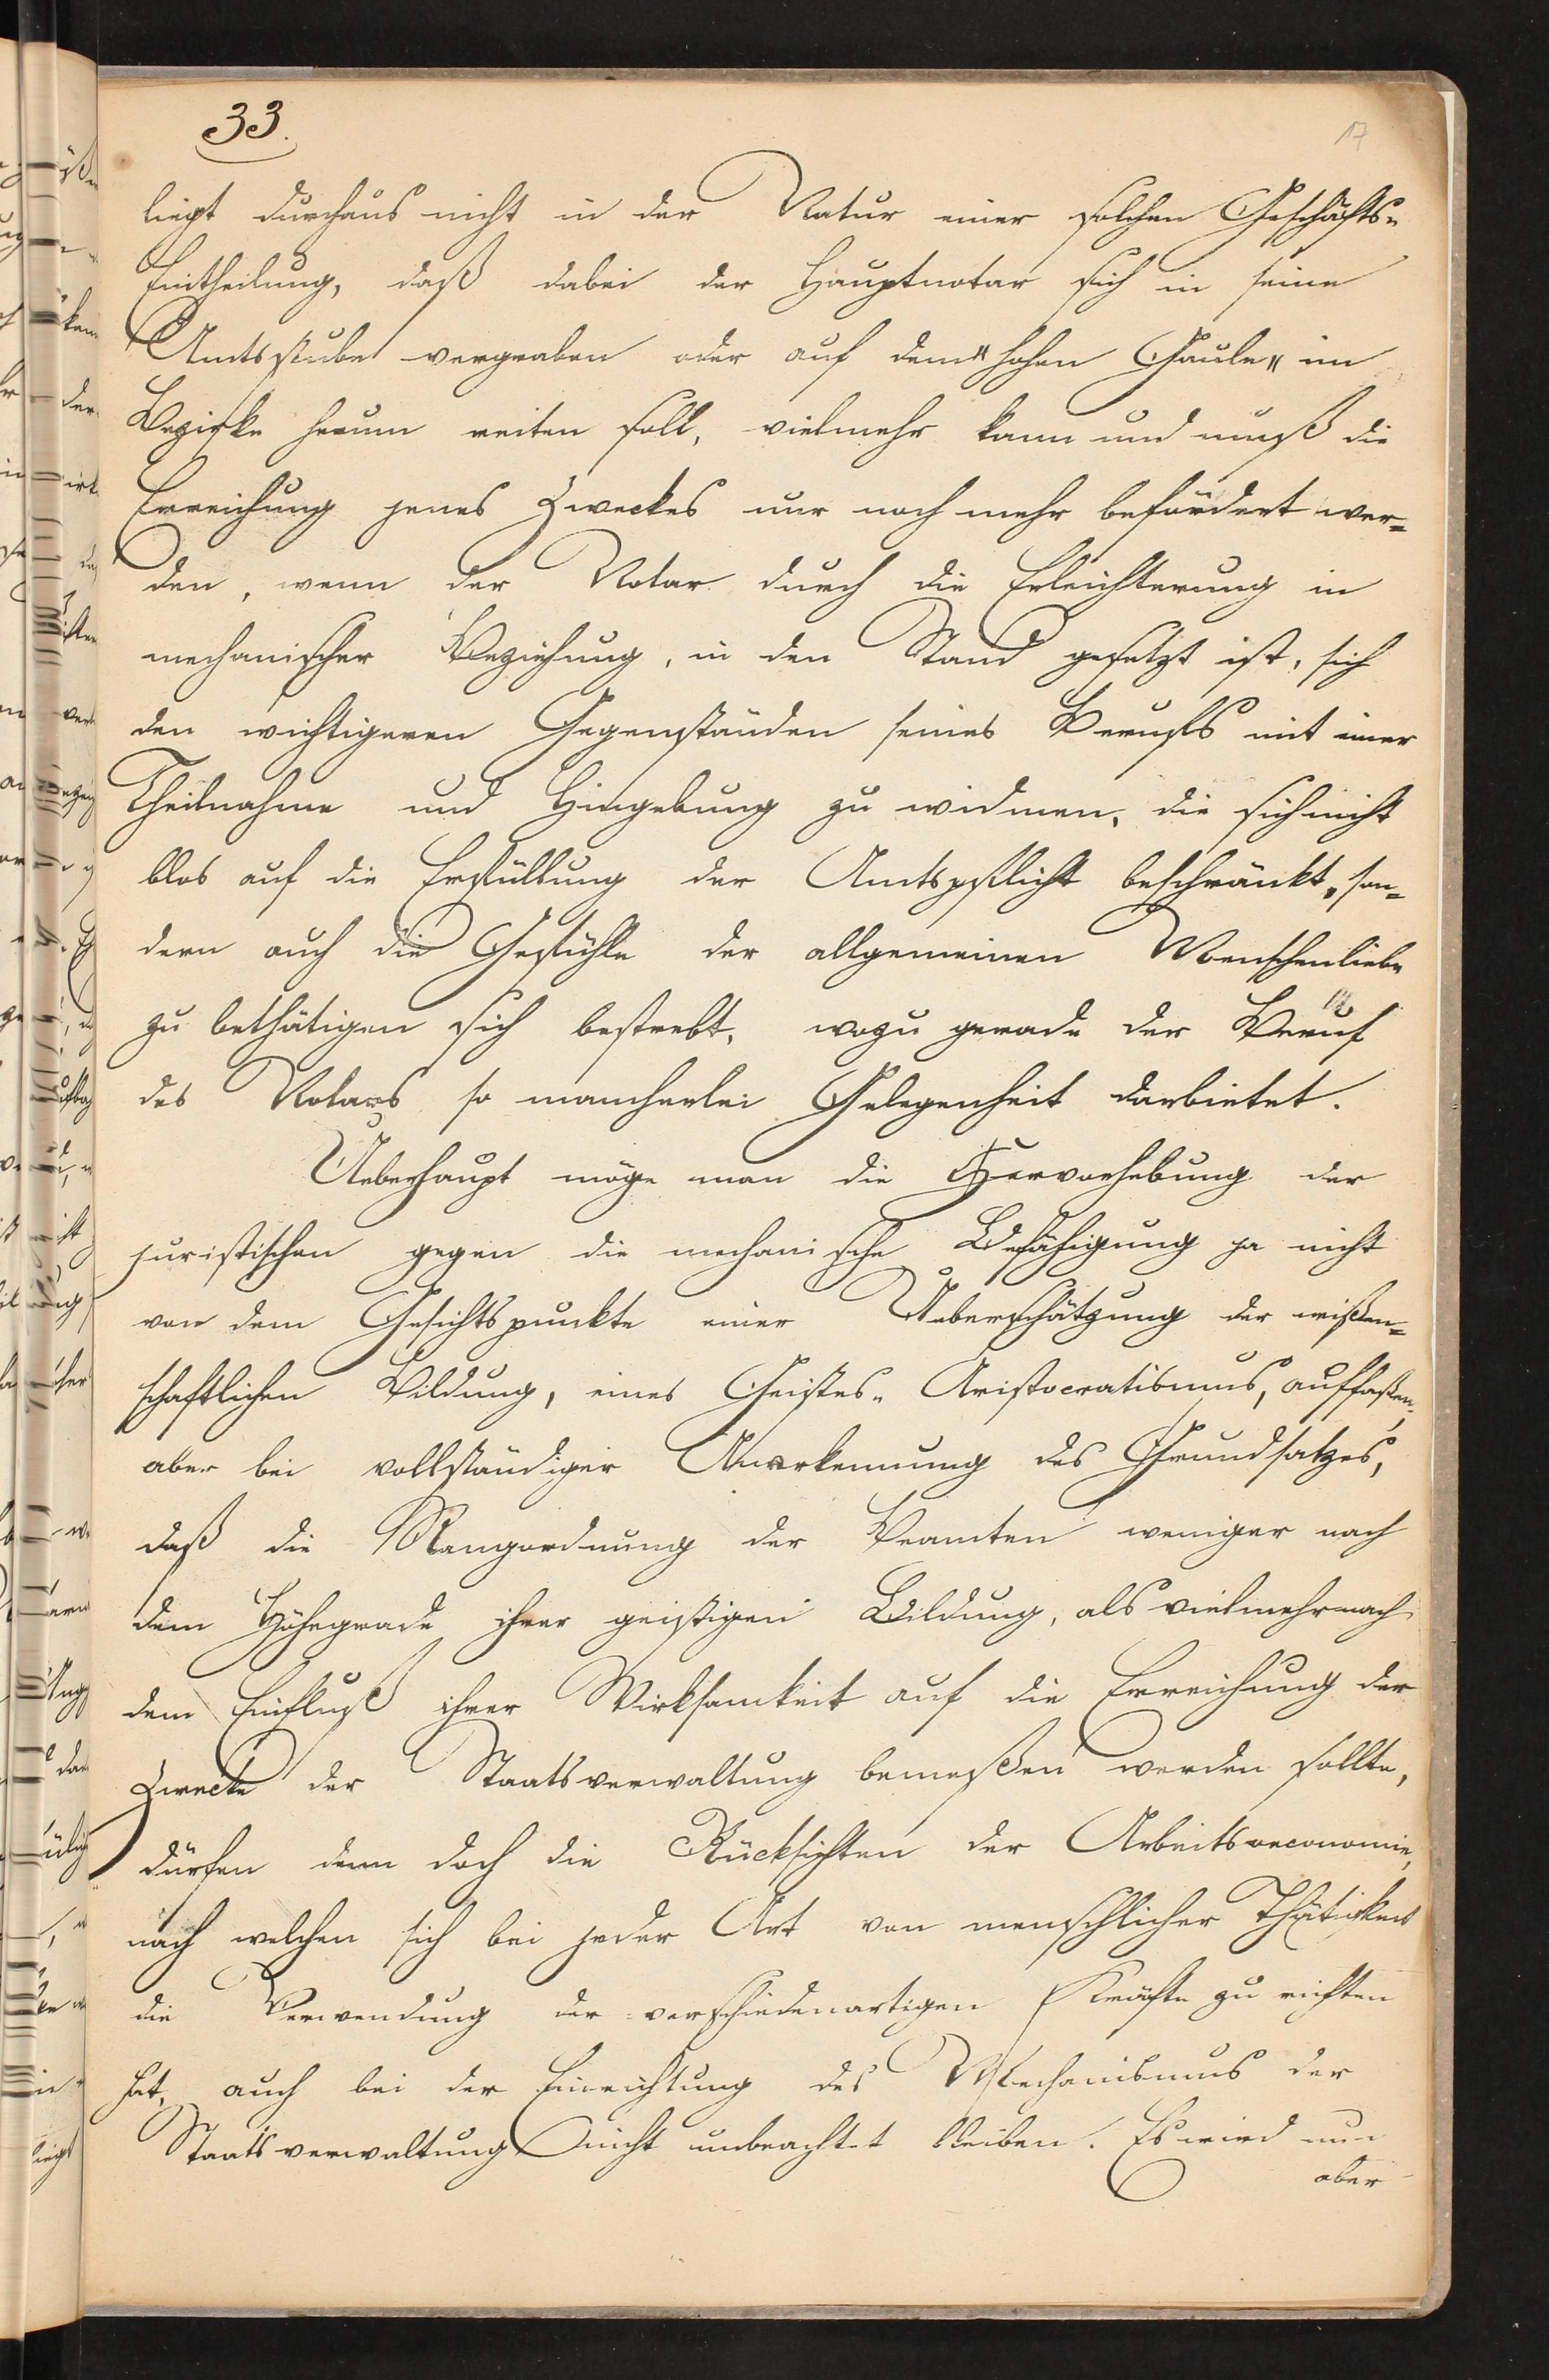 33.
17
liegt durchaus nicht in der Natur einer solchen Geschäfts-
Eintheilung, daß dabei der Hauptnotar sich in seine
Amtsstube vergraben oder auf dem "hohen Gaule" im
Bezirke herum reiten soll, vielmehr kann und muß die
Erreichung jenes Zweckes nur noch mehr befördert wer-
den, wenn der Notar durch die Erleichterung in
mechanischer Beziehung, in den Stand gesetzt ist, sich
den wichtigeren Gegenständen seines Berufs mit einer
Theilnahme und Hingebung zu widmen, die sich nicht
blos auf die Erfüllung der Amtspflicht beschränkt, son-
dern auch die Gefühle der allgemeinen Menschenliebe
zu bethätigen sich bestrebt, wozu gerade der Beruf
des Notars so mancherlei Gelegenheit darbietet.
Ueberhaupt möge man die Hervorhebung der
juristischen gegen die mechanische Befähigung ja nicht
von dem Gesichtspunkte einer Ueberschätzung der wißen-
schaftlichen Bildung, eines Geistes-Aristocratismus, auffaßen,
aber bei vollständiger Anerkennung des Grundsatzes,
daß die Rangordnung der Beamten weniger nach
dem Höhegrade ihrer geistigen Bildung, als vielmehr nach
dem Einfluß ihrer Wirksamkeit auf die Erreichung der
Zwecke der Staatsverwaltung bemeßen werden sollte,
dürfen denn doch die Rücksichten der Arbeitsoeconomie,
nach welchen sich bei jeder Art von menschlicher Thätigkeit
die Verwendung der verschiedenartigen Kräfte zu richten
hat, auch bei der Einrichtung des Mechanismus der
Staatsverwaltung nicht unbeachtet bleiben. Es wird nun
aber